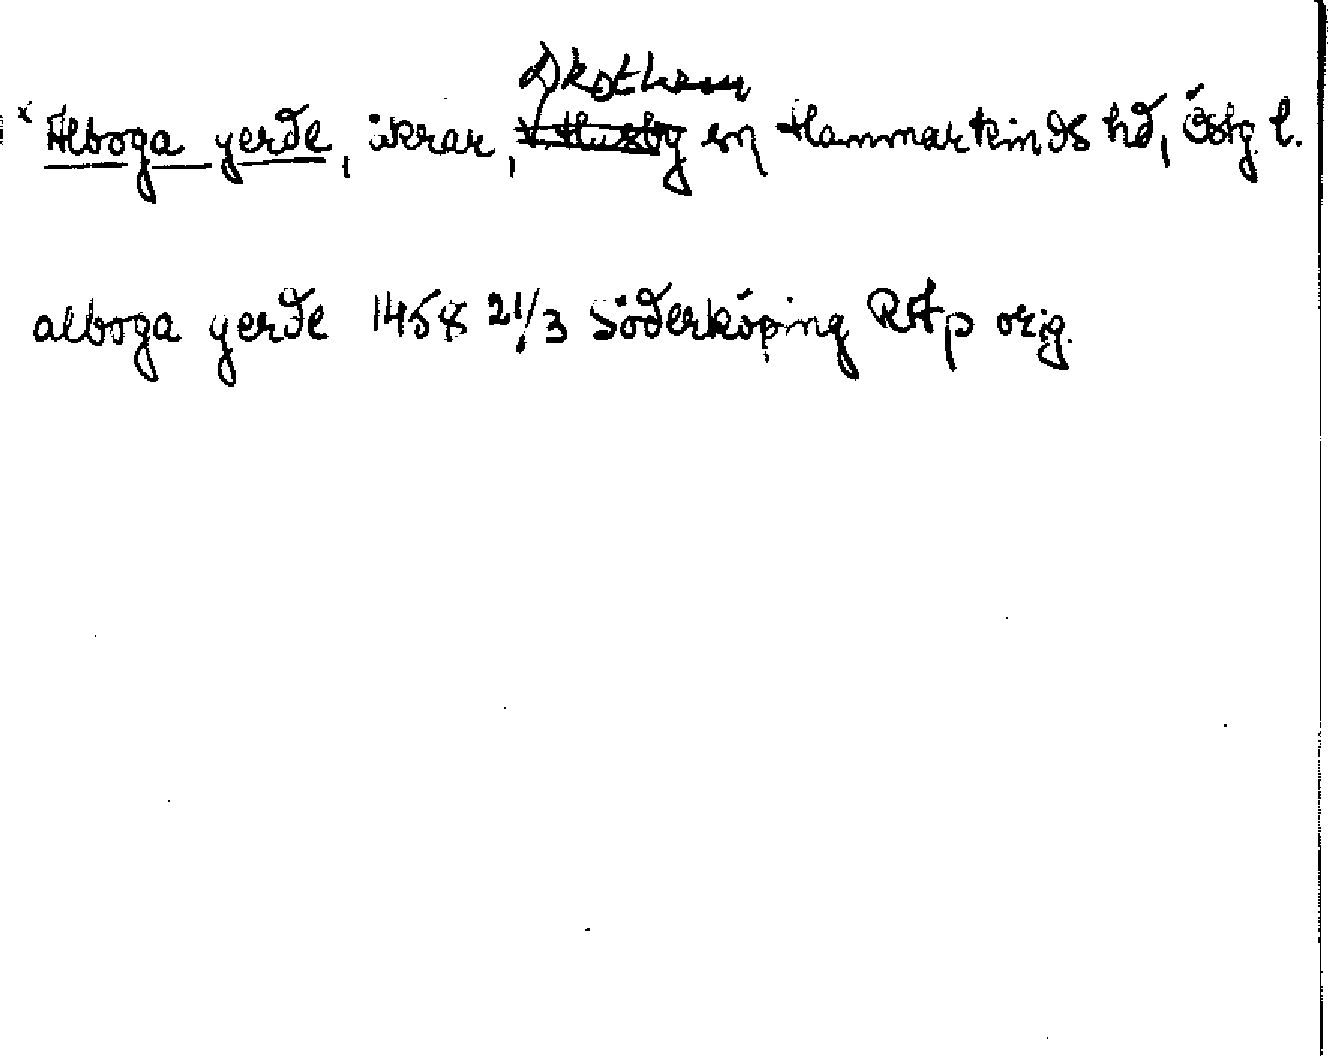 Drothem
x Alboga yerde, åkrar, v Husby sn Hammarkinds hd, Östg. l.
alboga yerde 1458 21/3 Söderköping RAp orig.